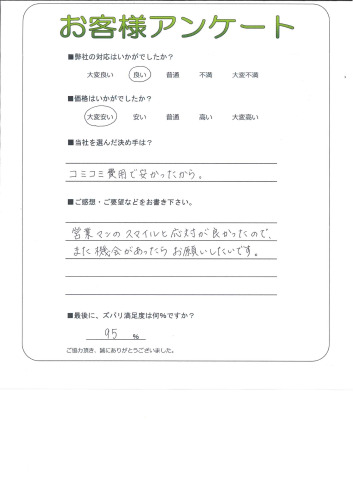 お客様アンケート
■弊社の対応はいかがでしたか?
大変良い 良い 普通 不満 大変不満
■価格はいかがでしたか?
大変安い 安い 普通 高い 大変高い
■当社を選んだ決め手は?
コミコミ費用で安かったから。
■ご感想・ご要望などをお書き下さい。
営業マンのスマイルと応対が良かったので、
また機会があったらお願いしたいです。
■最後に、ズバリ満足度は何%ですか?
95 %
ご協力頂き、誠にありがとうございました。